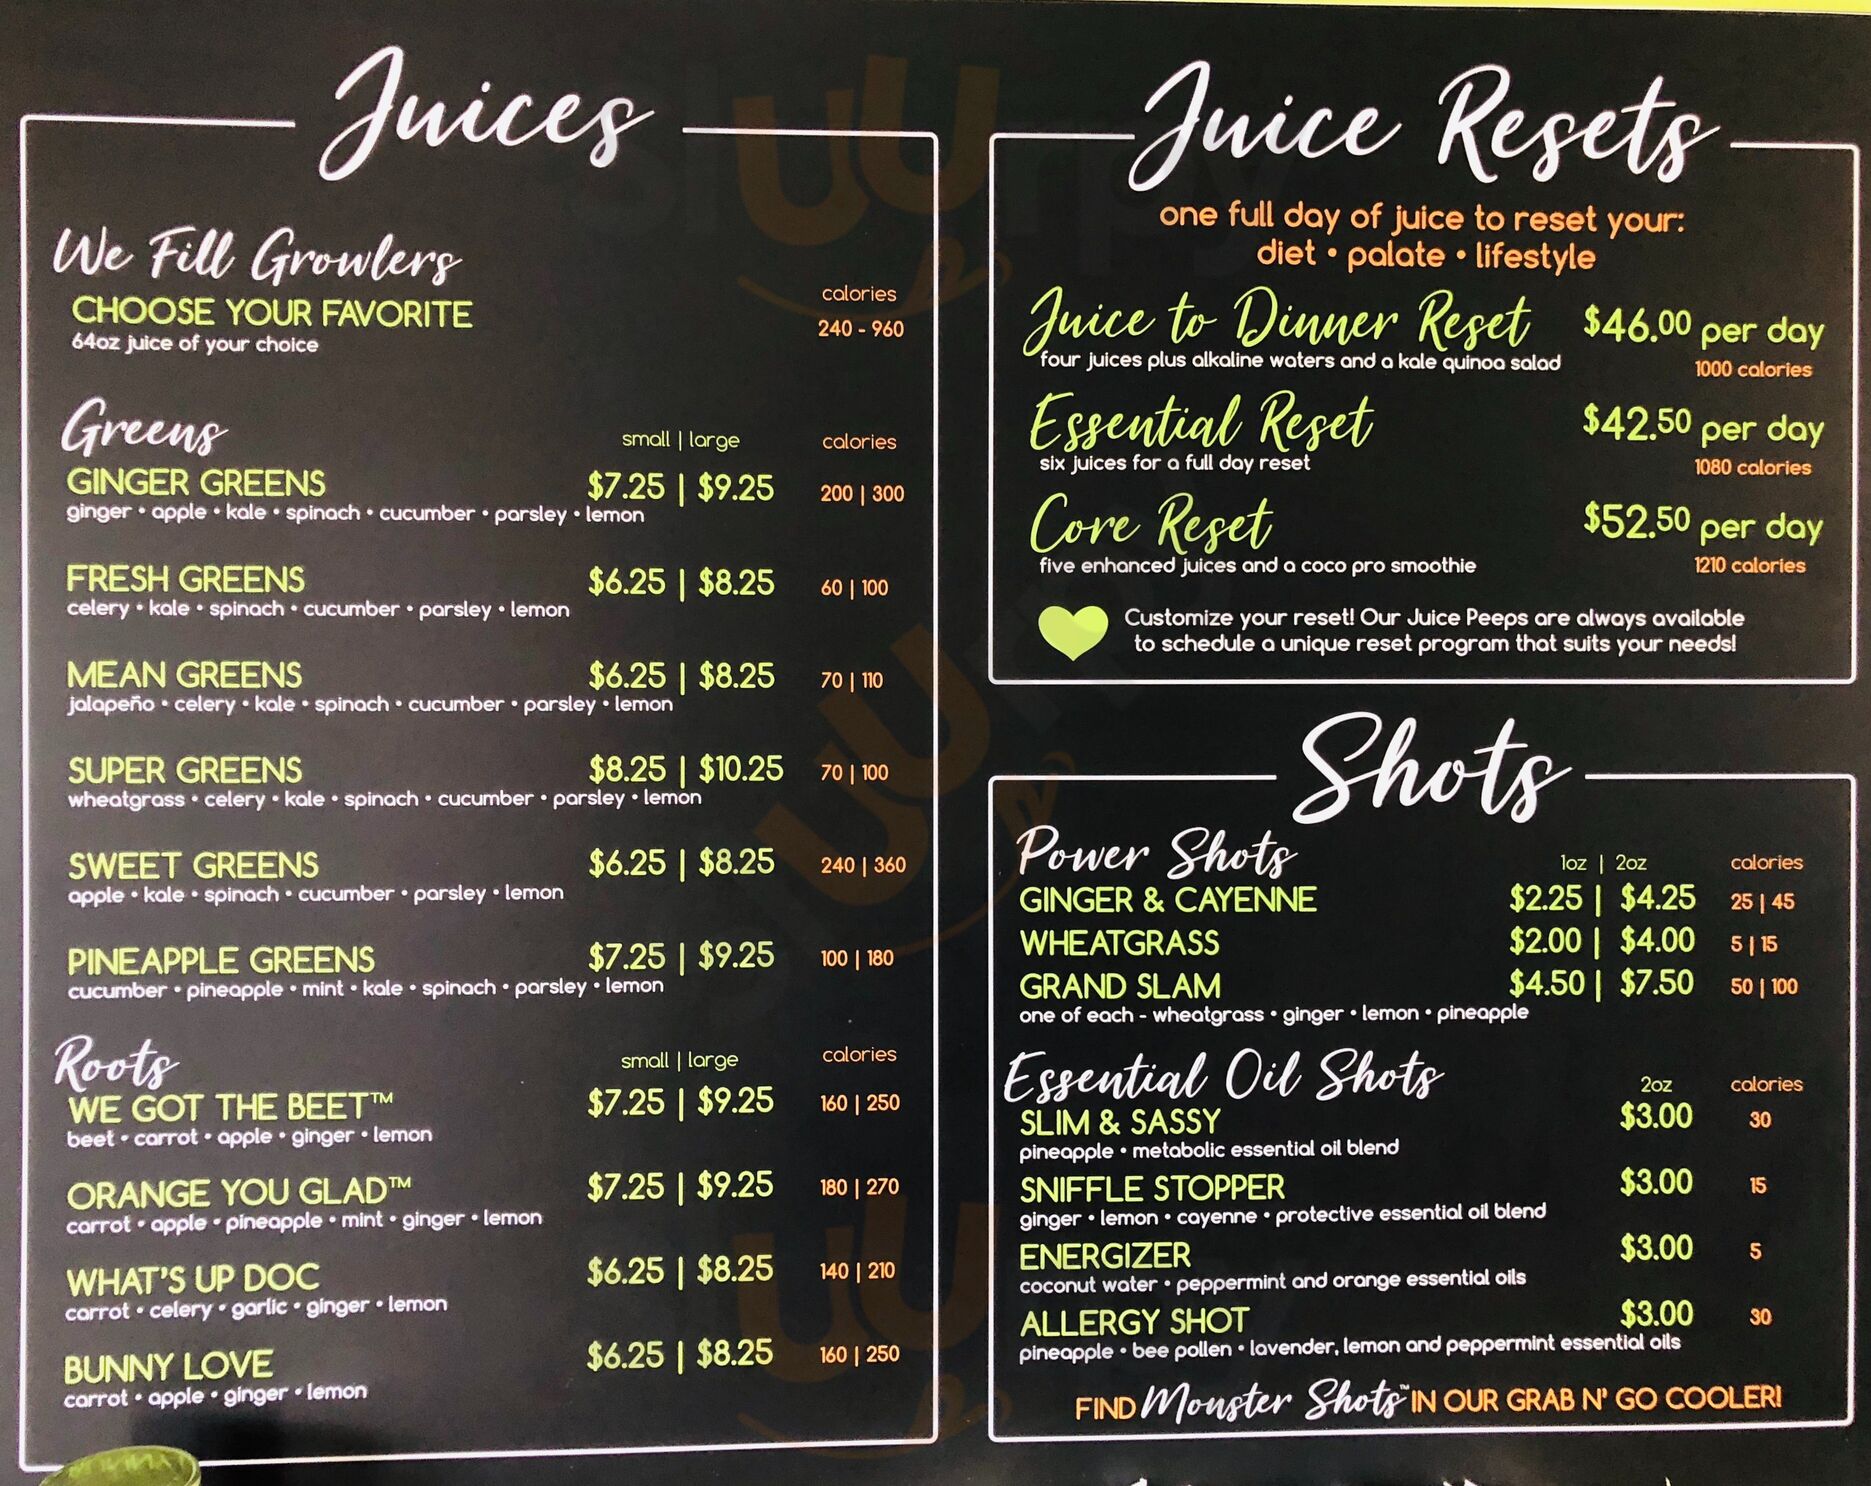 Juices
We Fill Growlers
calories
CHOOSE YOUR FAVORITE
240 - 960
64oz juice of your choice
Greens
small | large
calories
GINGER GREENS
$7.25 | $9.25
200 | 300
ginger • apple • kale • spinach • cucumber • parsley • lemon
FRESH GREENS
$6.25 | $8.25
60 | 100
celery • kale • spinach • cucumber • parsley • lemon
MEAN GREENS
$6.25 | $8.25
70 | 110
jalapeño • celery • kale • spinach • cucumber • parsley • lemon
SUPER GREENS
$8.25 | $10.25
70 | 100
wheatgrass • celery • kale • spinach • cucumber • parsley • lemon
SWEET GREENS
$6.25 | $8.25
240 | 360
apple • kale • spinach • cucumber • parsley • lemon
PINEAPPLE GREENS
$7.25 | $9.25
100 | 180
cucumber • pineapple • mint • kale • spinach • parsley • lemon
Roots
small | large
calories
WE GOT THE BEET™
$7.25 | $9.25
160 | 250
beet • carrot • apple • ginger • lemon
ORANGE YOU GLAD™
$7.25 | $9.25
180 | 270
carrot • apple • pineapple • mint • ginger • lemon
WHAT'S UP DOC
$6.25 | $8.25
140 | 210
carrot • celery • garlic • ginger • lemon
BUNNY LOVE
$6.25 | $8.25
160 | 250
carrot • apple • ginger • lemon
Juice Resets
one full day of juice to reset your:
diet • palate • lifestyle
Juice to Dinner Reset
$46.00 per day
four juices plus alkaline waters and a kale quinoa salad
1000 calories
Essential Reset
$42.50 per day
six juices for a full day reset
1080 calories
Core Reset
$52.50 per day
five enhanced juices and a coco pro smoothie
1210 calories
Customize your reset! Our Juice Peeps are always available
to schedule a unique reset program that suits your needs!
Shots
Power Shots
1oz | 2oz
calories
GINGER & CAYENNE
$2.25 | $4.25
25 | 45
WHEATGRASS
$2.00 | $4.00
5 | 15
GRAND SLAM
$4.50 | $7.50
50 | 100
one of each - wheatgrass • ginger • lemon • pineapple
Essential Oil Shots
2oz
calories
SLIM & SASSY
$3.00
30
pineapple • metabolic essential oil blend
SNIFFLE STOPPER
$3.00
15
ginger • lemon • cayenne • protective essential oil blend
ENERGIZER
$3.00
5
coconut water • peppermint and orange essential oils
ALLERGY SHOT
$3.00
30
pineapple • bee pollen • lavender, lemon and peppermint essential oils
FIND Monster Shots™ IN OUR GRAB N' GO COOLER!